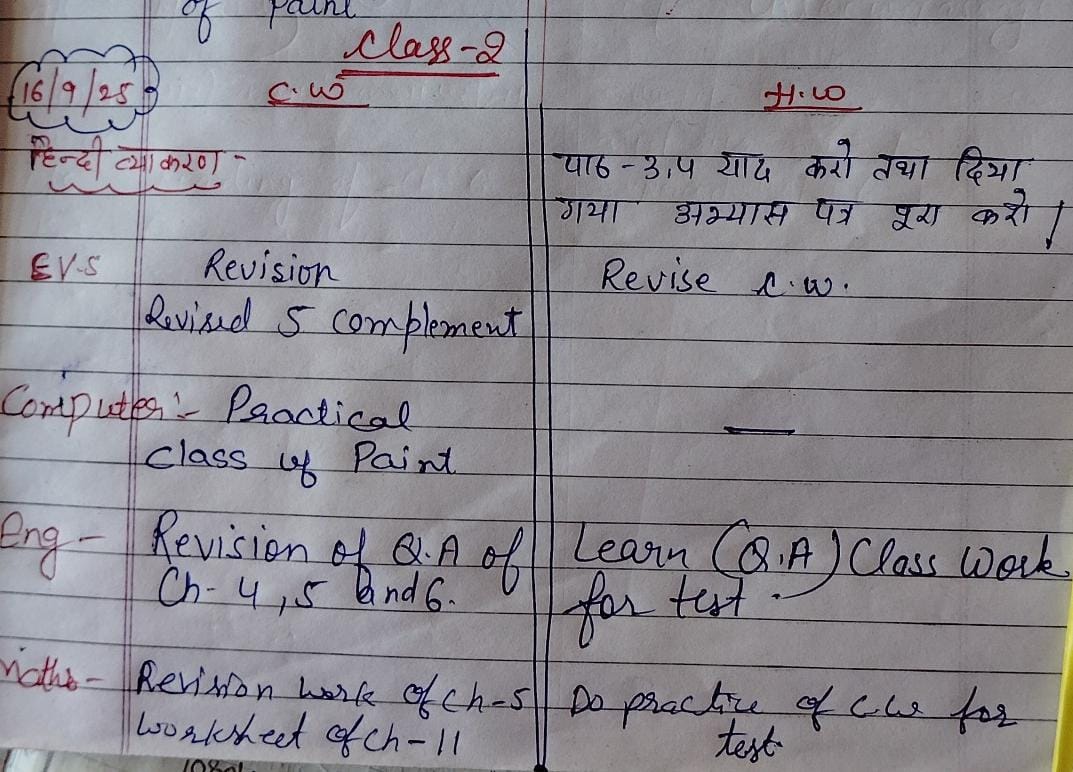 of Paint
Class-2
16/9/25 C.W H.W
हिन्दी व्याकरण - पाठ-3,4 याद करो तथा दिया
गया अभ्यास पत्र पूरा करो |
EV.S Revision Revise C.W.
Revised 5 complement
Computer :- Practical —
class of Paint
Eng - Revision of Q.A of Learn (Q.A) Class Work
Ch- 4, 5 and 6. for test.
Maths - Revision work of Ch-5 Do practice of C.W for
worksheet of Ch-11 test.